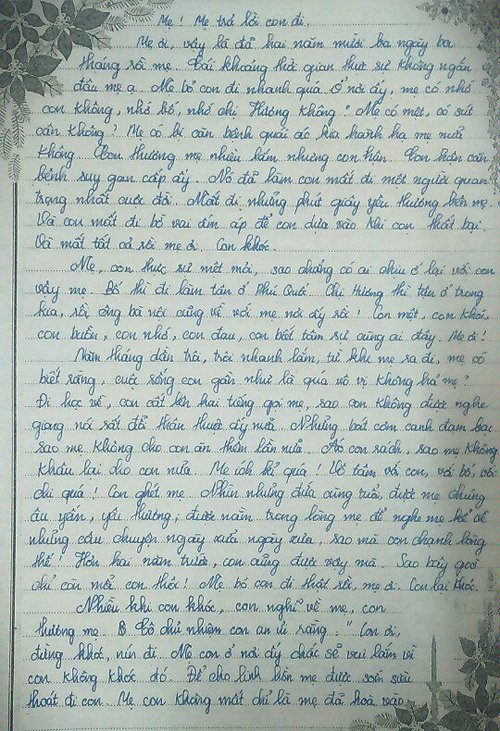 Mẹ! Mẹ trả lời con đi.
Mẹ ơi, vậy là đã hai năm mười ba ngày ba
tháng rồi mẹ. Cái khoảng thời gian thực sự không ngắn
đâu mẹ ạ. Mẹ bỏ con đi nhanh quá. Ở nơi ấy, mẹ có nhớ
con không, nhớ bố, nhớ chị Hương không? Mẹ có mệt, có sút
cân không? Mẹ có bị căn bệnh quái ác kia hành hạ mẹ nữa
không. Con thương mẹ nhiều lắm nhưng con hận. Con hận căn
bệnh suy gan cấp ấy. Nó đã làm con mất đi một người quan
trọng nhất cuộc đời. Mất đi những phút giây yêu thương bên mẹ.
Và con mất đi bờ vai ấm áp để con dựa vào khi con thất bại.
Và mất tất cả rồi mẹ ơi. Con khóc.
Mẹ, con thực sự mệt mỏi, sao chẳng có ai chịu ở lại với con
vậy mẹ. Bố thì đi làm tận ở Phú Quới. Chị Hương thì tận ở trong
kia, rồi ông bà nội cũng về với mẹ nơi ấy rồi! Con mệt, con khóc,
con buồn, con nhớ, con đau, con biết tâm sự cùng ai đây. Mẹ ơi!
Năm tháng dần trôi, trôi nhanh lắm, từ khi mẹ ra đi, mẹ có
biết rằng, cuộc sống con gần như là quá vô vị không hả mẹ?
Đi học về, con cất lên hai tiếng gọi mẹ, sao con không được nghe
giọng nói sắt đá thân thuộc ấy nữa. Những bát cơm canh đạm bạc
sao mẹ không cho con ăn thêm lần nữa. Áo con rách, sao mẹ không
khâu lại cho con nữa. Mẹ ích kỉ quá! Vô tâm với con, với bố, với
chị quá! Con ghét mẹ. Nhìn những đứa cùng tuổi, được mẹ chúng
âu yếm, yêu thương, được nằm trong lòng mẹ để nghe mẹ kể về
những câu chuyện ngày xửa ngày xưa, sao mà con chạnh lòng
thế! Hơn hai năm trước, con cũng được vậy mà. Sao bây giờ
chỉ còn mỗi con thôi! Mẹ bỏ con đi thật rồi, mẹ ơi. Con lại khóc.
Nhiều khi con khóc, con nghĩ về mẹ, con
thương mẹ. Cô chủ nhiệm con an ủi rằng: "Con ơi,
đừng khóc, nín đi. Mẹ con ở nơi ấy chắc sẽ vui lắm vì
con không khóc đó. Để cho linh hồn mẹ được sớm siêu
thoát đi con. Mẹ con không mất chỉ là mẹ đã hoà vào